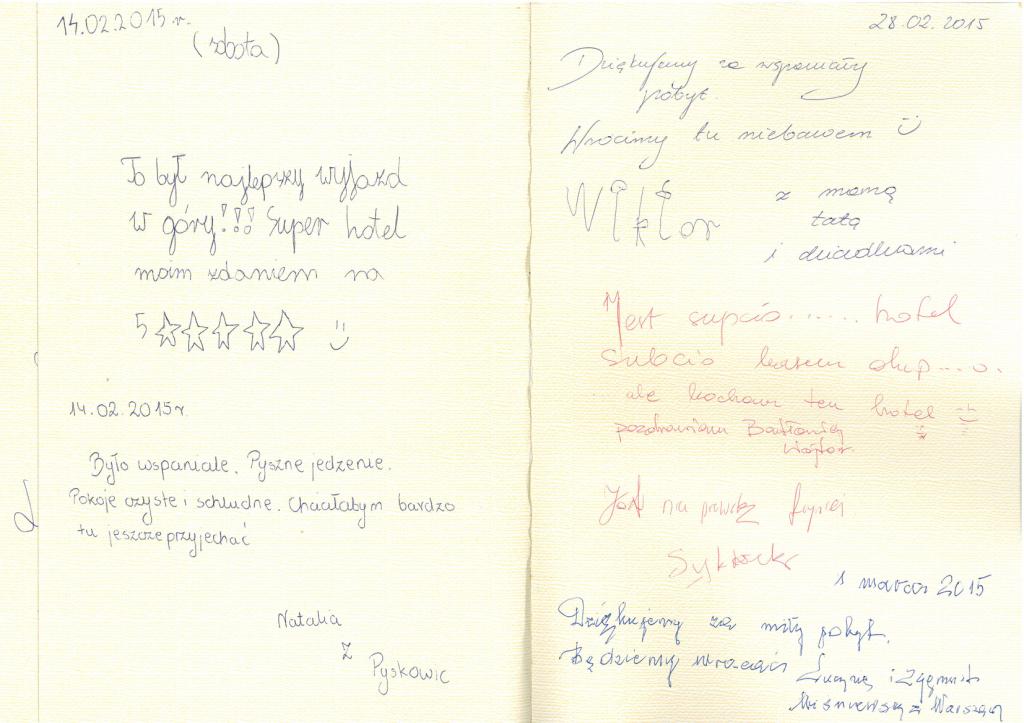 14.02.2015 r.
(sobota)
To był najlepszy wyjazd
w góry!!! Super hotel
moim zdaniem na
5 ☆☆☆☆☆ :)
14.02.2015r.
Było wspaniale. Pyszne jedzenie.
Pokoje czyste i schludne. Chciałabym bardzo
tu jeszcze przyjechać
Natalia
z
Pyskowic
28.02.2015
Dziękujemy za wspaniały
pobyt.
Wrócimy tu niebawem :)
Wiktor
z mamą
tatą
i dziadkami
Jest supcio...... hotel
ale kocham ten hotel :)
pozdrawiam
1 marzec 2015
Dziękujemy za miły pobyt.
Będziemy wracać
Lucyna i Zygmunt
z Warszawy